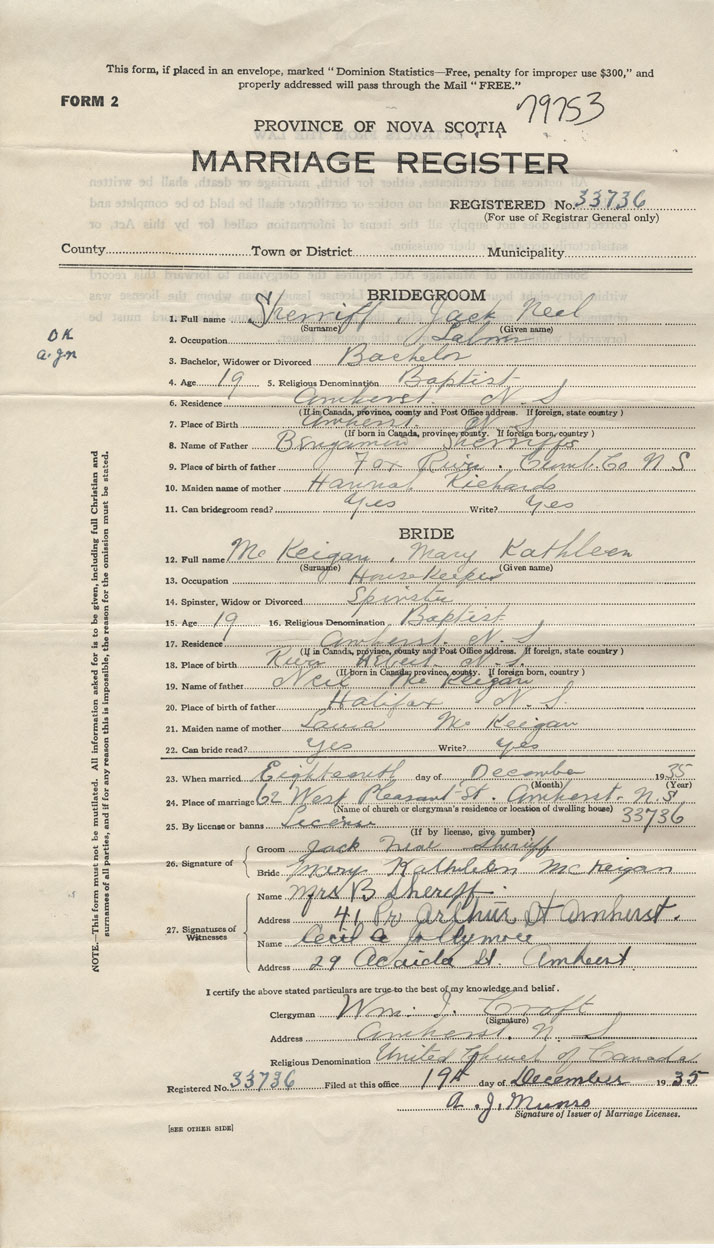 This form, if placed in an envelope, marked "Dominion Statistics—Free, penalty for improper use $300," and
properly addressed will pass through the Mail "FREE."
FORM 2
79753
PROVINCE OF NOVA SCOTIA
MARRIAGE REGISTER
REGISTERED No. 33736
(For use of Registrar General only)
County Town or District Municipality
BRIDEGROOM
1. Full name Sherriff, Jack Neil
(Surname) (Given name)
OK
2. Occupation Labour
a.jn
3. Bachelor, Widower or Divorced Bachelor
4. Age 19 5. Religious Denomination Baptist
6. Residence Amherst N S
(If in Canada, province, county and Post Office address. If foreign, state country)
7. Place of Birth Amherst N. S
(If born in Canada, province, county. If foreign born, country)
8. Name of Father Benjamin Sherriffs
9. Place of birth of father Fox River. Cumb. Co N S
10. Maiden name of mother Hannah Richards
11. Can bridegroom read? Yes Write? Yes
BRIDE
12. Full name McKeigan, Mary Kathleen
(Surname) (Given name)
13. Occupation Housekeeper
14. Spinster, Widow or Divorced Spinster
15. Age 19 16. Religious Denomination Baptist
17. Residence Amherst. N. S
(If in Canada, province, county and Post Office address. If foreign, state country)
18. Place of birth River Hebert N. S.
(If born in Canada, province, county. If foreign born, country)
19. Name of father Neil McKeigan
20. Place of birth of father Halifax N. S.
21. Maiden name of mother Laura McKeigan
22. Can bride read? Yes Write? Yes
23. When married Eighteenth day of December 1935
(Month) (Year)
24. Place of marriage 62 West Pleasant St. Amherst. N. S
(Name of church or clergyman's residence or location of dwelling house)
25. By license or banns License 33736
(If by license, give number)
26. Signature of Groom Jack Neal Sheriff
Bride Mary Kathleen McKeigan
27. Signatures of Witnesses
Name Mrs B Sheriff.
Address 41 Pr Arthur St Amherst.
Name Cecil A Jollymore
Address 29 Acaida St. Amherst
I certify the above stated particulars are true to the best of my knowledge and belief.
Clergyman Wm. J. Croft
(Signature)
Address Amherst. N. S
Religious Denomination United Church of Canada
Registered No. 33736 Filed at this office 19th day of December 1935
A. J. Munro
Signature of Issuer of Marriage Licenses.
[SEE OTHER SIDE]
NOTE.—This form must not be mutilated. All information asked for is to be given, including full Christian and
surnames of all parties, and if for any reason this is impossible, the reason for the omission must be stated.